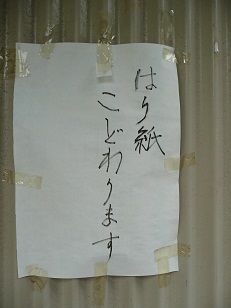 はり紙
こどわります